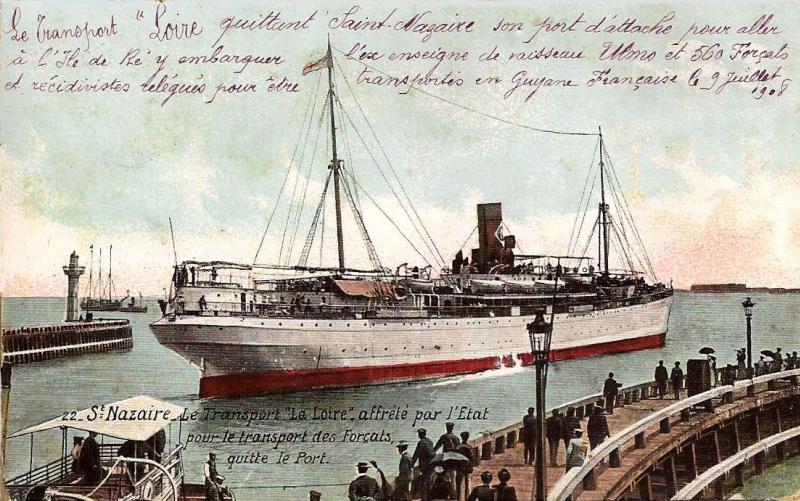 Le Transport "Loire quittant Saint-Nazaire son port d'attache pour aller
à l'Ile de Ré y embarquer l'ex enseigne de vaisseau Ulmo et 560 Forçats
et récidivistes relégués pour être transportés en Guyane Française le 9 Juillet
1908
22_St. Nazaire_Le Transport "La Loire", affrété par l'Etat
pour le transport des Forçats,
quitte le Port.